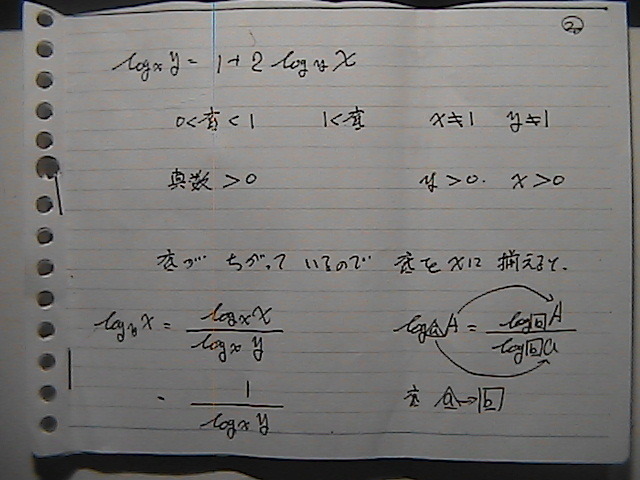 ②
log_x y = 1 + 2 log_y x
0 < 底 < 1  1 < 底  x ≠ 1  y ≠ 1
真数 > 0  y > 0.  x > 0
底が ちがって いるので 底を xに 揃えると.
log_y x = \frac{log_x x}{log_x y}  log_a A = \frac{log_b A}{log_b a}
= \frac{1}{log_x y}  底 a→b